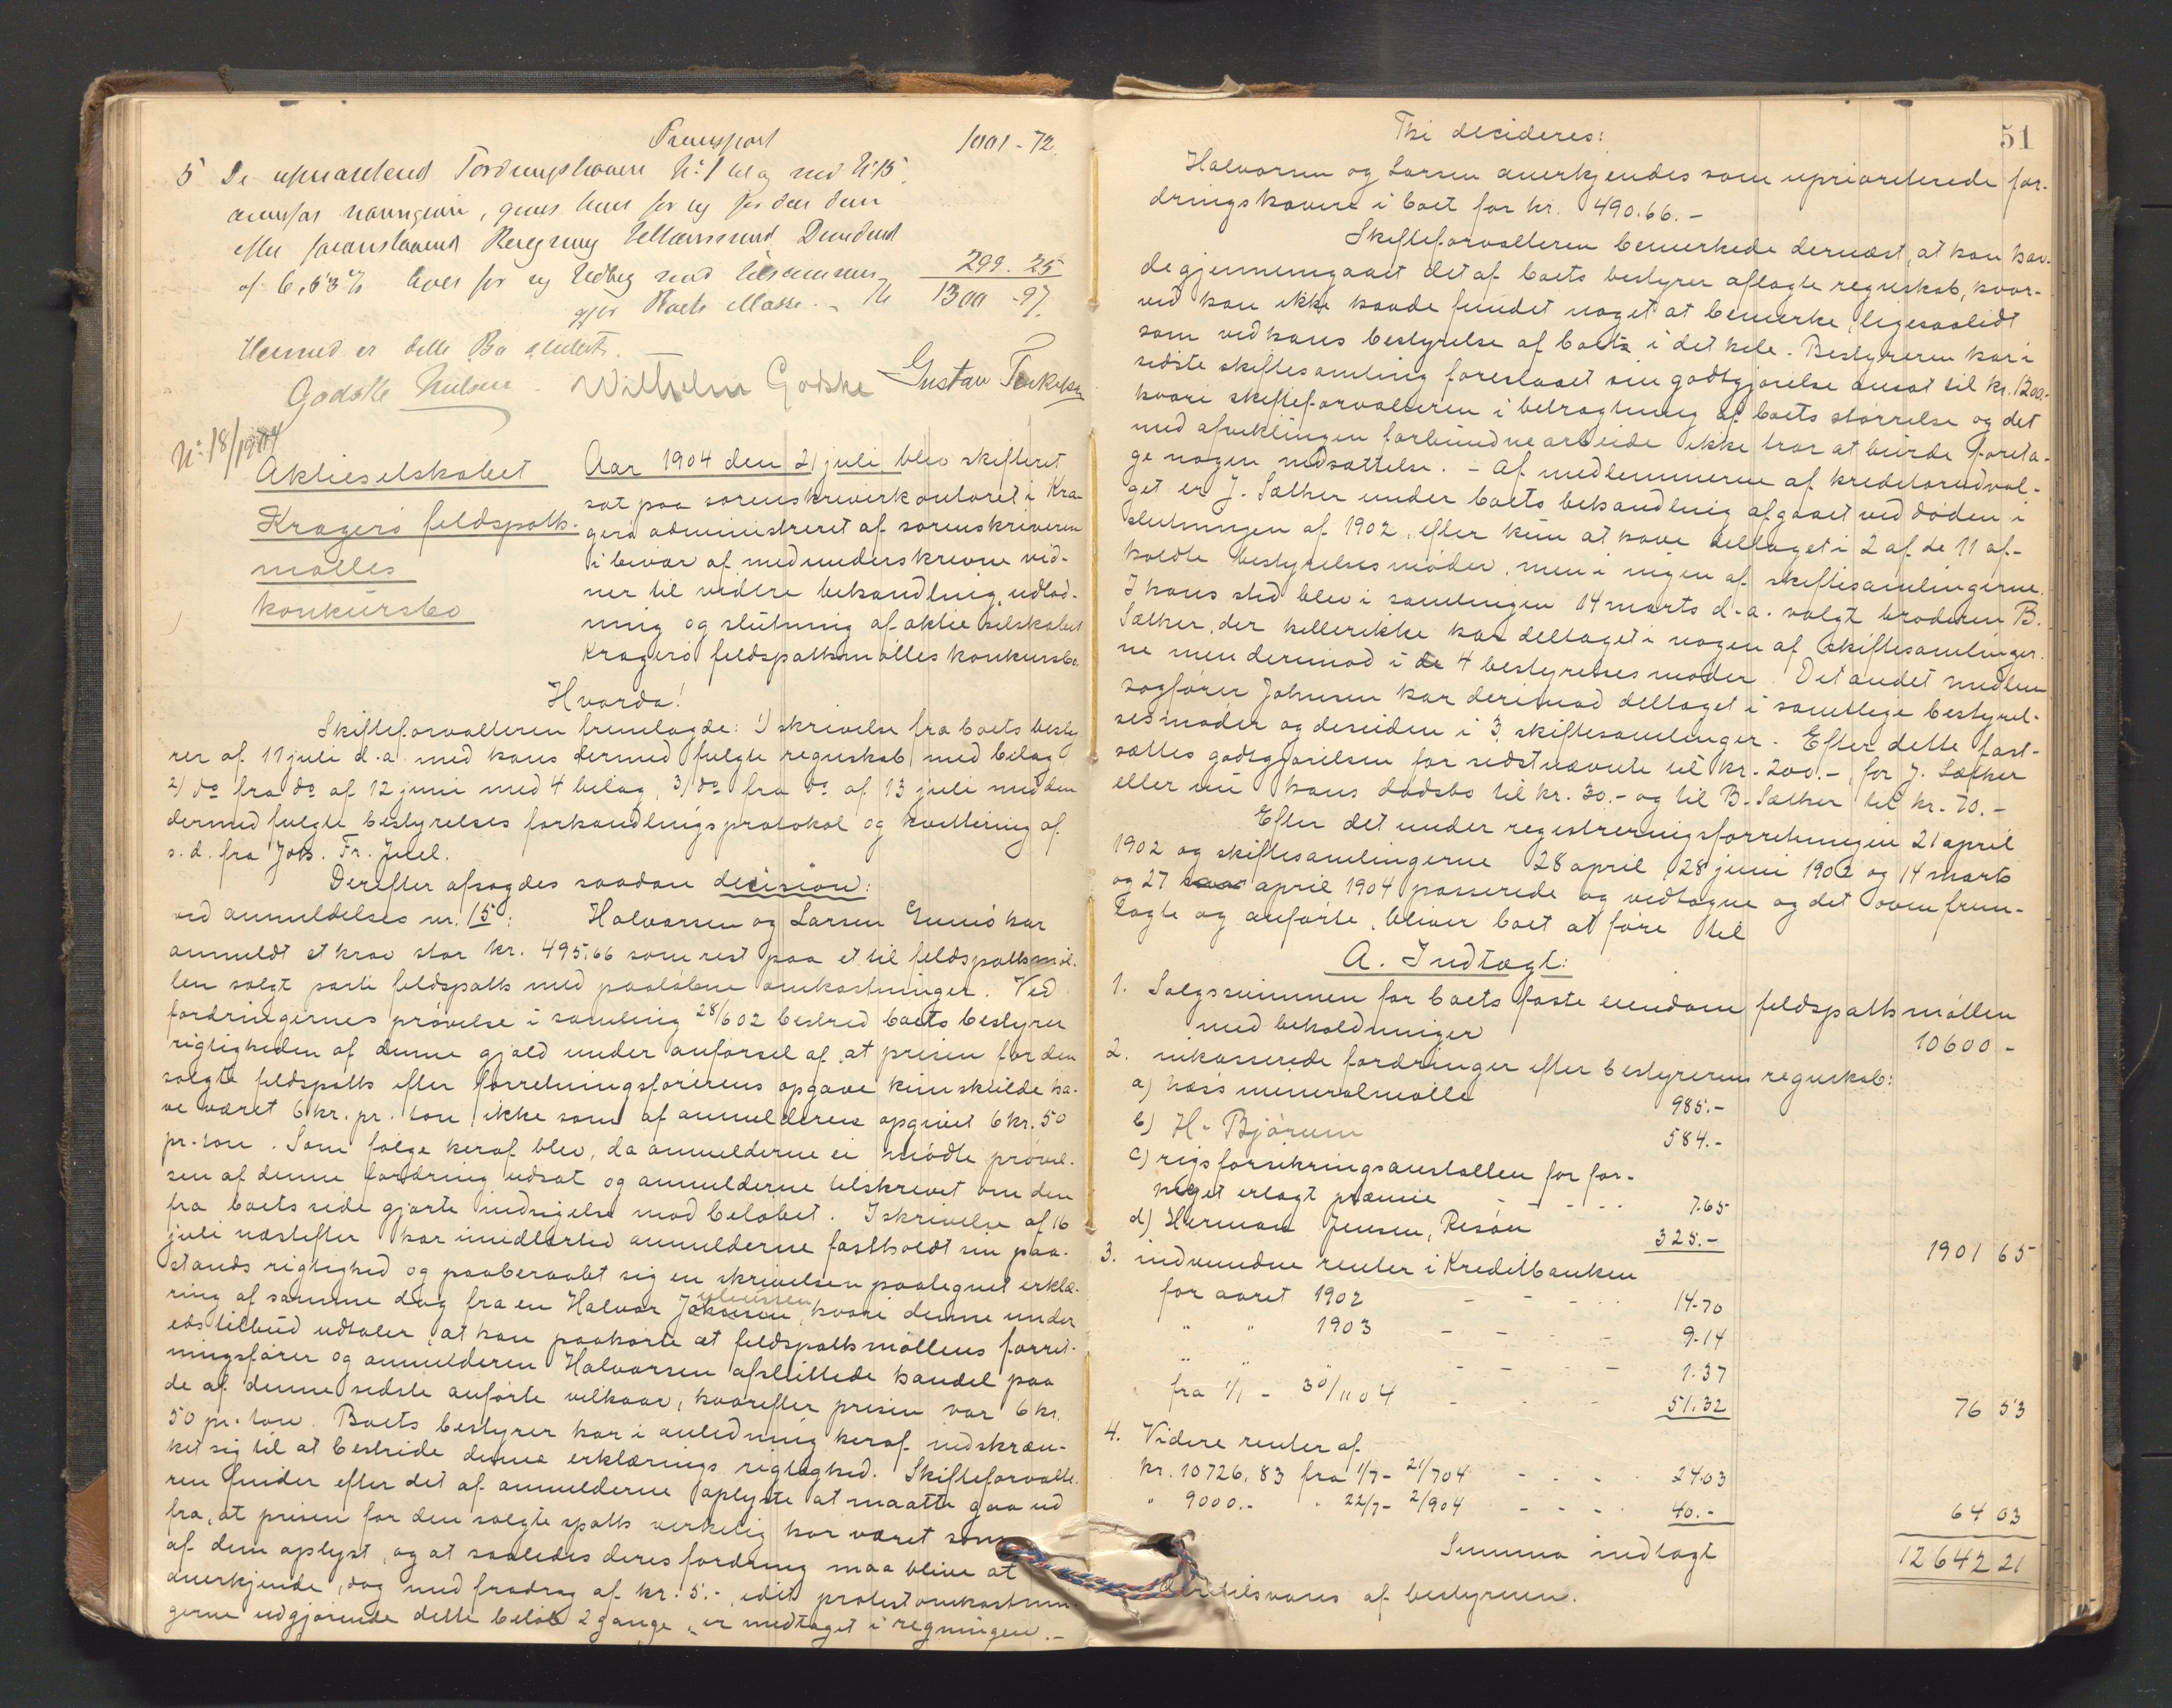 Transport 1001-72
5 De uprioriterte Fordringshavere No 1 til og med No 15,
ovenfor navngivne, gives hver for sig for den dem
efter foranstaaende Regning tilkommende Dividende
af 6,53 % hver for sig Udlæg med tilsammen 299.25
gjør Boets Masse - Kr 1300-97.
Hermed er dette Bo sluttet.
Godske Nielsen. Wilhelm Godske Gustav Terkelsen
No 18/1904
Aktieselskabet
Kragerø feldspath-
mølles
konkursbo
Aar 1904 den 21 juli blev skifteret
sat paa sorenskriverkontoret i Kra-
gerø administreret af sorenskriveren
i bivær af medunderskrevne vid-
ner til videre behandling, udlod-
ning og slutning af aktieselskabet
Kragerø feldspathmølles konkursbo.
Hvorda!
Skifteforvalteren fremlagde: 1) skrivelse fra boets besty
rer af 11 juli d.a. med hans dermed fulgte regnskab med bilag
2) do fra do af 12 juni med 4 bilag, 3) do fra do af 13 juli med den
dermed fulgte bestyrelses forhandlingsprotokol og kvittering af
s.d. fra Johs. Fr. Juel.
Derefter afsagdes saadan decision:
ved anmeldelses nr. 15: Halvorsen og Larsen Gumø har
anmeldt et krav stor kr. 495,66 som rest paa et til feldspathmøl-
len solgt parti feldspath med paaløbne omkostninger. Ved
fordringernes prøvelse i samling 28/6 02 bestred boets bestyrer
rigtigheden af denne gjæld under anførsel af, at prisen for den
solgte feldspath efter forretningsførerens opgave kun skulde ha-
ve været 6 kr. pr. ton, ikke som af anmelderne opgivet 6 kr. 50
pr. ton. Som følge heraf blev, da anmelderne ei mødte prøvel-
sen af denne fordring udsat og anmelderne tilskrevet om den
fra boets side gjorte indsigelse mod beløbet. I skrivelse af 16
juli næstefter har imidlertid anmelderne fastholdt sin paa-
stands rigtighed og paaberaabt sig en skrivelsen paategnet erklæ-
ring af samme dag fra en Halvor, hvori denne under
edstilbud udtaler, at han paahørte at feldspathmøllens forret-
ningsfører og anmelderen Halvorsen afsluttede handel paa
de af denne sidste anførte vilkaar, hvorefter prisen var 6 kr.
50 pr. ton. Boets bestyrer har i anledning heraf indskræn-
ket sig til at bestride denne erklærings rigtighed. Skifteforvalte-
ren finder efter det af anmelderne oplyste at maatte gaa ud
fra, at prisen for den solgte spath virkelig har været som
af dem oplyst, og at saaledes deres fordring maa blive at
anerkjende, dog med fradrag af kr. 5.-, idet protestomkostnin-
gerne udgjørende dette beløb 2 gange er medtaget i regningen.-
51
Thi decideres:
Halvorsen og Larsen anerkjendes som uprioriterede for-
dringshavere i boet for kr. 490.66.-
Skifteforvalteren bemerkede dernæst, at han hav-
de gjennemgaaet det af boets bestyrer aflagte regnskab, hvor-
ved han ikke havde fundet noget at bemerke, ligesaalidt
som ved hans bestyrelse af boet i det hele. Bestyreren har i
sidste skiftesamling foreslaaet sin godtgjørelse ansat til kr. 1200.-
hvori skifteforvalteren i betragtning af boets størrelse og det
med afviklingen forbundne arbeide ikke tror at burde foreta-
ge nogen nedsættelse. - Af medlemmerne af kreditorudval-
get er J. Sæther under boets behandling afgaaet ved døden i
slutningen af 1902, efter kun at have deltaget i 2 af de 11 af-
holdte bestyrelsesmøder, men i ingen af skiftesamlingerne.
I hans sted blev i samlingen 14 marts d.a. valgt broderen B.
Sæther, der heller ikke har deltaget i nogen af skiftesamlinger-
ne men derimod i de 4 bestyrelsesmøder. Det andet medlem
sagfører Johnsen har derimod deltaget i samtlige bestyrel-
sesmøder og desuden i 3 skiftesamlinger. Efter dette fast-
sættes godtgjørelsen for sidstnævnte til kr. 200.-, for J. Sæther
eller nu hans dødsbo til kr. 30.- og til B. Sæther til kr. 70.-
Efter det under registreringsforretningen 21 april
1902 og skiftesamlingerne 28 april, 28 juni 1902 og 14 marts
og 27 april 1904 passerede og vedtagne og det oven frem-
lagte og anførte, bliver boet at føre til
A. Indtægt:
1. Salgssummen for boets faste eiendom feldspathmøllen
med beholdninger 10600 -
2. inkasserede fordringer efter bestyrerens regnskab:
a) Næs mineralmølle 985.-
b) H. Bjørum 584.-
c) rigsforsikringsanstalten for for-
meget erlagt præmie - - - - 7.65
d) Herman Jensen, Risør 325.- 1901 65
3. indvundne renter i Kreditbanken
for aaret 1902 - - - - 14.70
" " 1903 - - - - 9.14
" " " - - - - 1.37
fra 1/1 - 30/11 04 - - - 51.32 76 53
4. Videre renter af
kr. 10726,83 fra 1/7 - 21/7 04 - - - 24.03
" 9000.- " 22/7 - 2/9 04 - - - 40.- 64 03
Summa indtægt 12642 21
tilsvares af bestyreren.